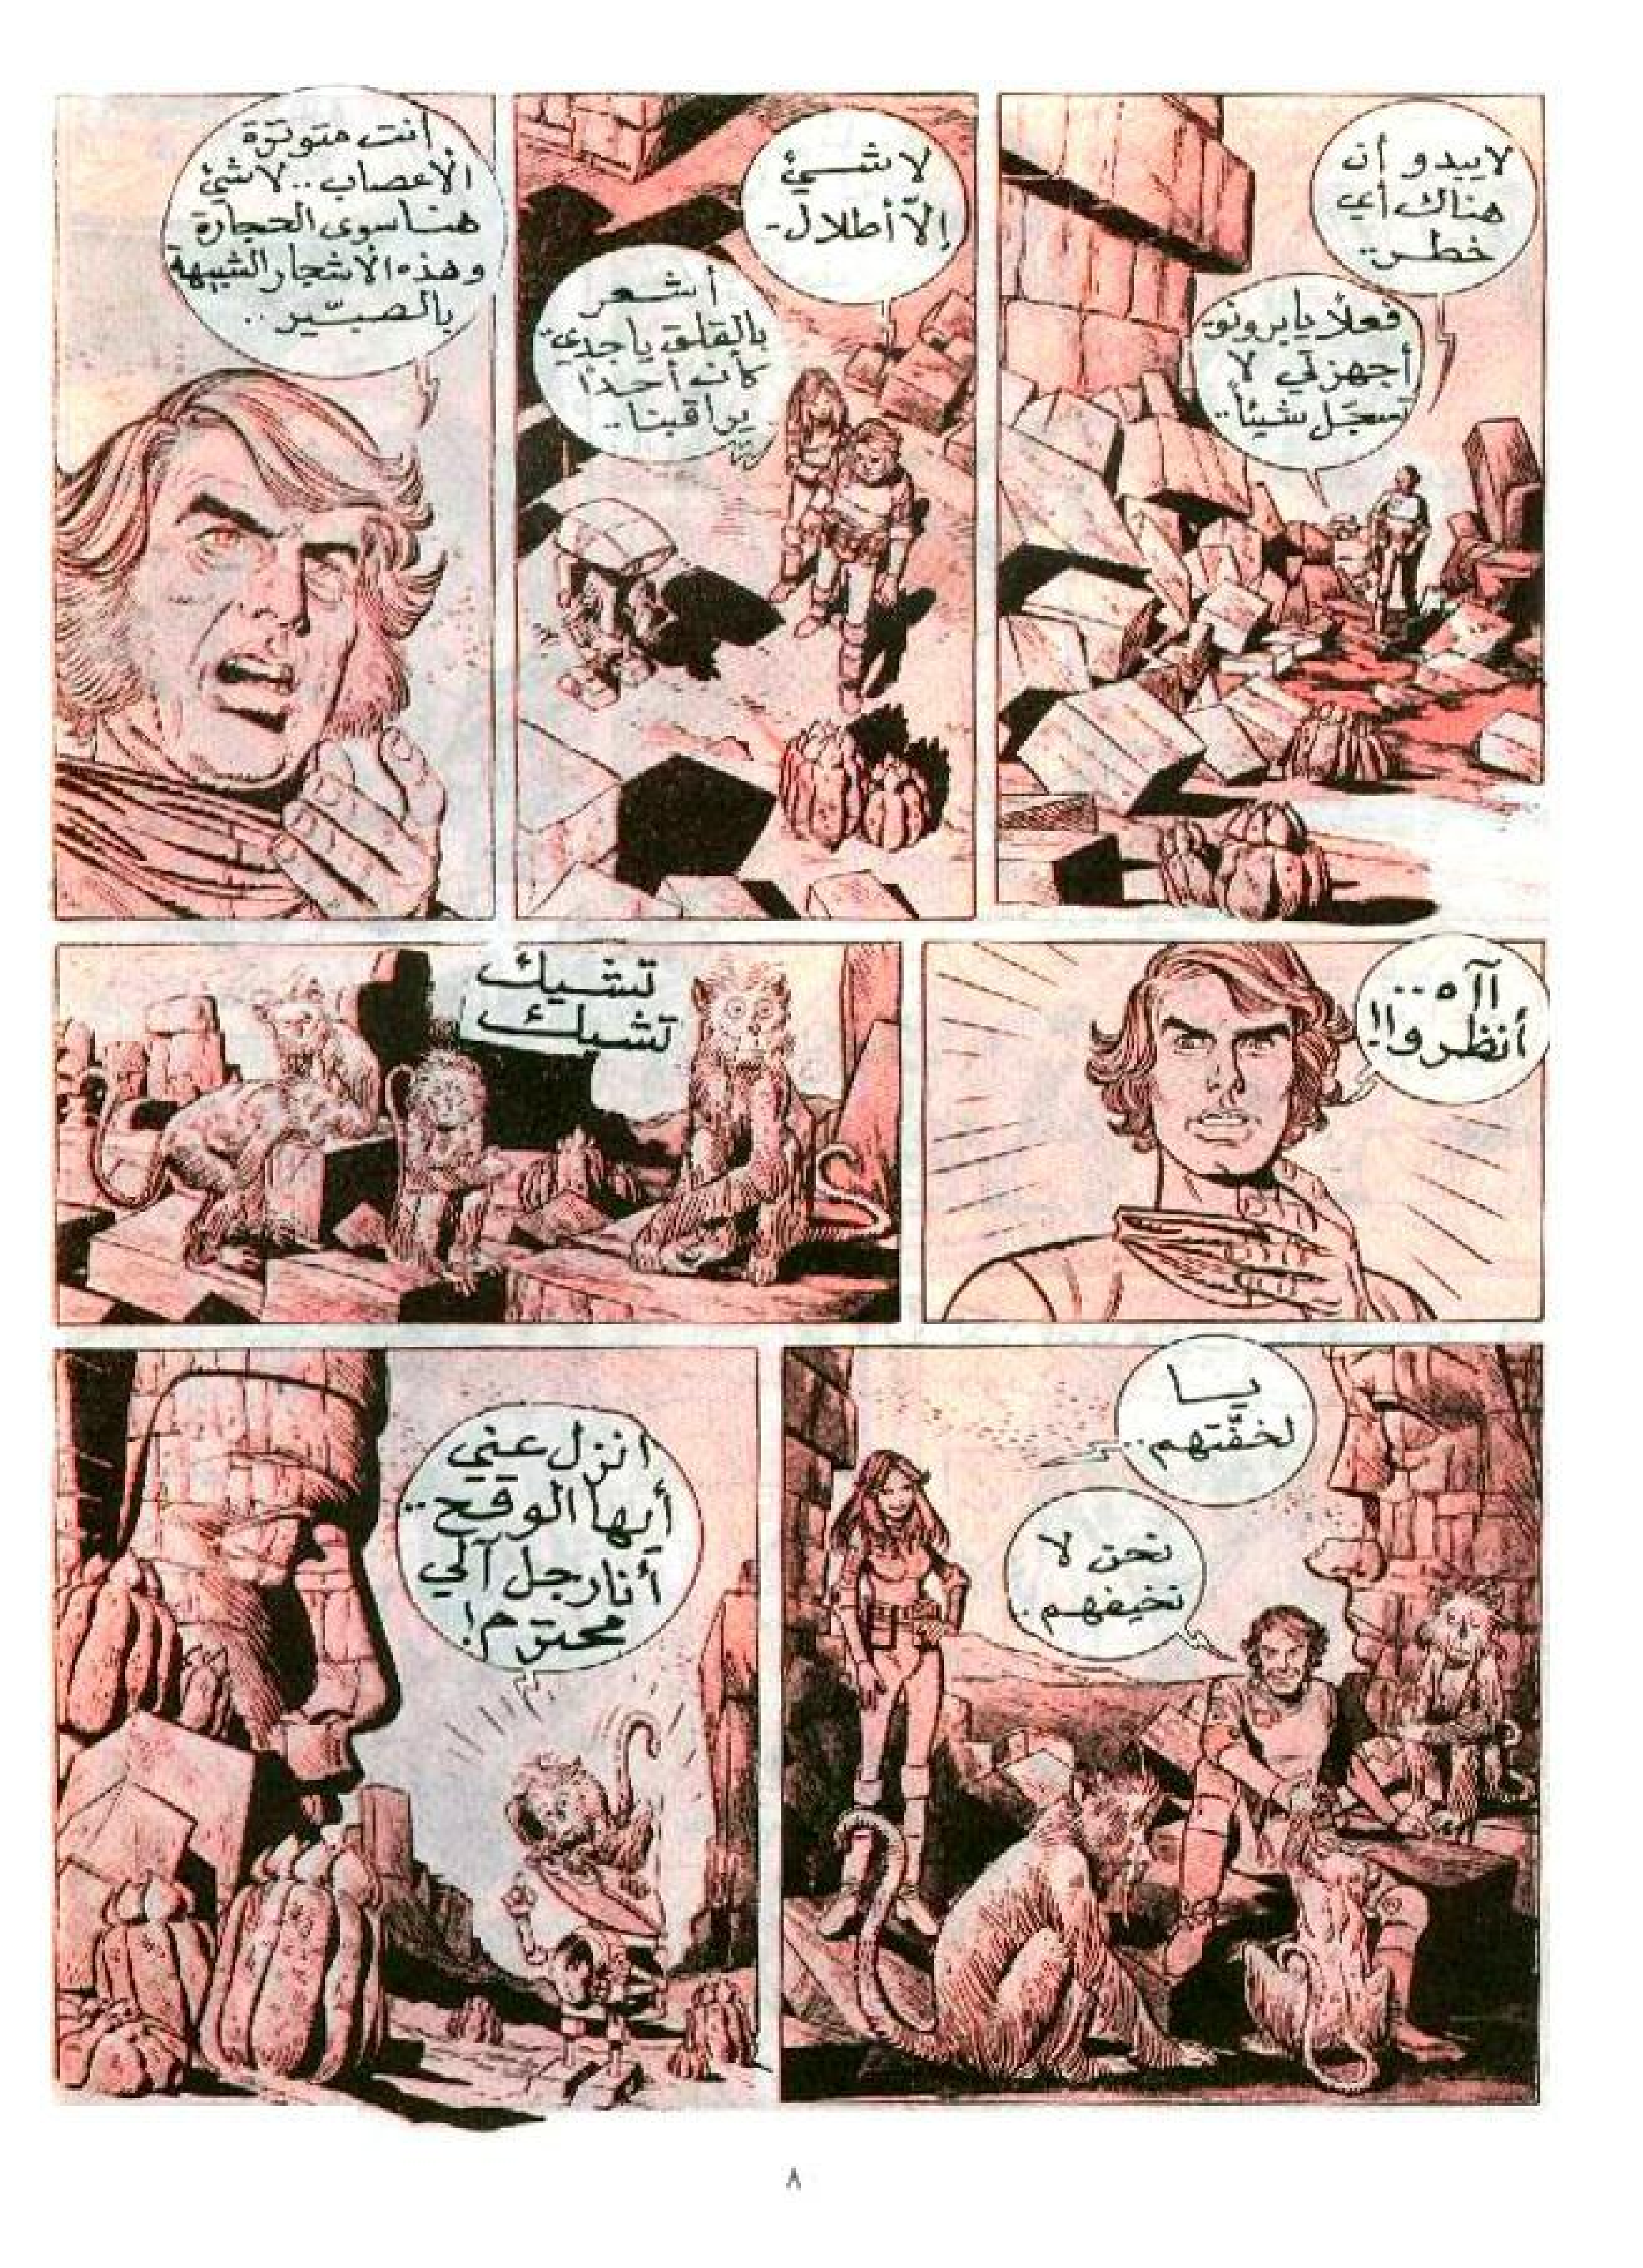 لايبدو أن
هناك أي
خطر..
فعلاً يا برونو،
أجهزتي لا
تسجّل شيئاً..
لا شيئ
إلاّ أطلال-
أشعر
بالقلق يا جدي
كأن أحداً
يراقبنا..
أنت متوترة
الأعصاب.. لا شيئ
هنا سوى الحجارة
وهذه الأشجار الشبيهة
بالصبّير..
آآه..
أنظروا!!
تشيك
تشيك
يا
لخفّتهم..
نحن لا
نخيفهم..
انزل عني
أيها الوقح..
أنا رجل آلي
محترم!
٨